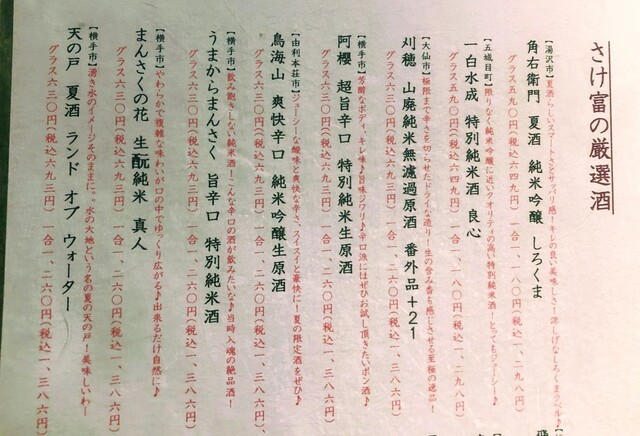 さけ富の厳選酒
【湯沢市】夏酒らしいスマートさとサッパリ感!キレの良い美味しさ!涼しげなしろくまラベル♪
角右衛門 夏酒 純米吟醸 しろくま
グラス五九〇円(税込六四九円) 一合一、一八〇円(税込一、二九八円)
【五城目町】限りなく純米吟醸に近いクオリティの高い特別純米酒!とってもジューシー♪
一白水成 特別純米酒 良心
グラス五九〇円(税込六四九円) 一合一、一八〇円(税込一、二九八円)
【大仙市】極限まで辛さを切らせたドライな造り!生の含み香も感じさせる至極の逸品!
刈穂 山廃純米無濾過原酒 番外品+21
グラス六三〇円(税込六九三円) 一合一、二六〇円(税込一、三八六円)
【横手市】芳醇なボディ、キレ味♪旨味ジワリ♪辛口派にはぜひお試し頂きたいポン酒♪
阿櫻 超旨辛口 特別純米生原酒
グラス六三〇円(税込六九三円) 一合一、二六〇円(税込一、三八六円)
【由利本荘市】ジューシーな酸味と爽快な辛さ、スイスイと豪快に!夏の限定酒をぜひ♪
鳥海山 爽快辛口 純米吟醸生原酒
グラス六三〇円(税込六九三円) 一合一、二六〇円(税込一、三八六円)
【横手市】飲み飽きしない純米酒!こんな辛口の酒が飲みたいな♪当時入魂の絶品酒!
うまからまんさく 旨辛口 特別純米酒
グラス六三〇円(税込六九三円) 一合一、二六〇円(税込一、三八六円)
【横手市】やわらかで複雑な味わいが口の中でゆっくり広がる♪出来るだけ自然に♪
まんさくの花 生酛純米 真人
グラス六三〇円(税込六九三円) 一合一、二六〇円(税込一、三八六円)
【横手市】湧き水のイメージそのままに。。水の大地という名の夏の天の戸!美味しいわー
天の戸 夏酒 ランド オブ ウォーター
グラス六三〇円(税込六九三円) 一合一、二六〇円(税込一、三八六円)